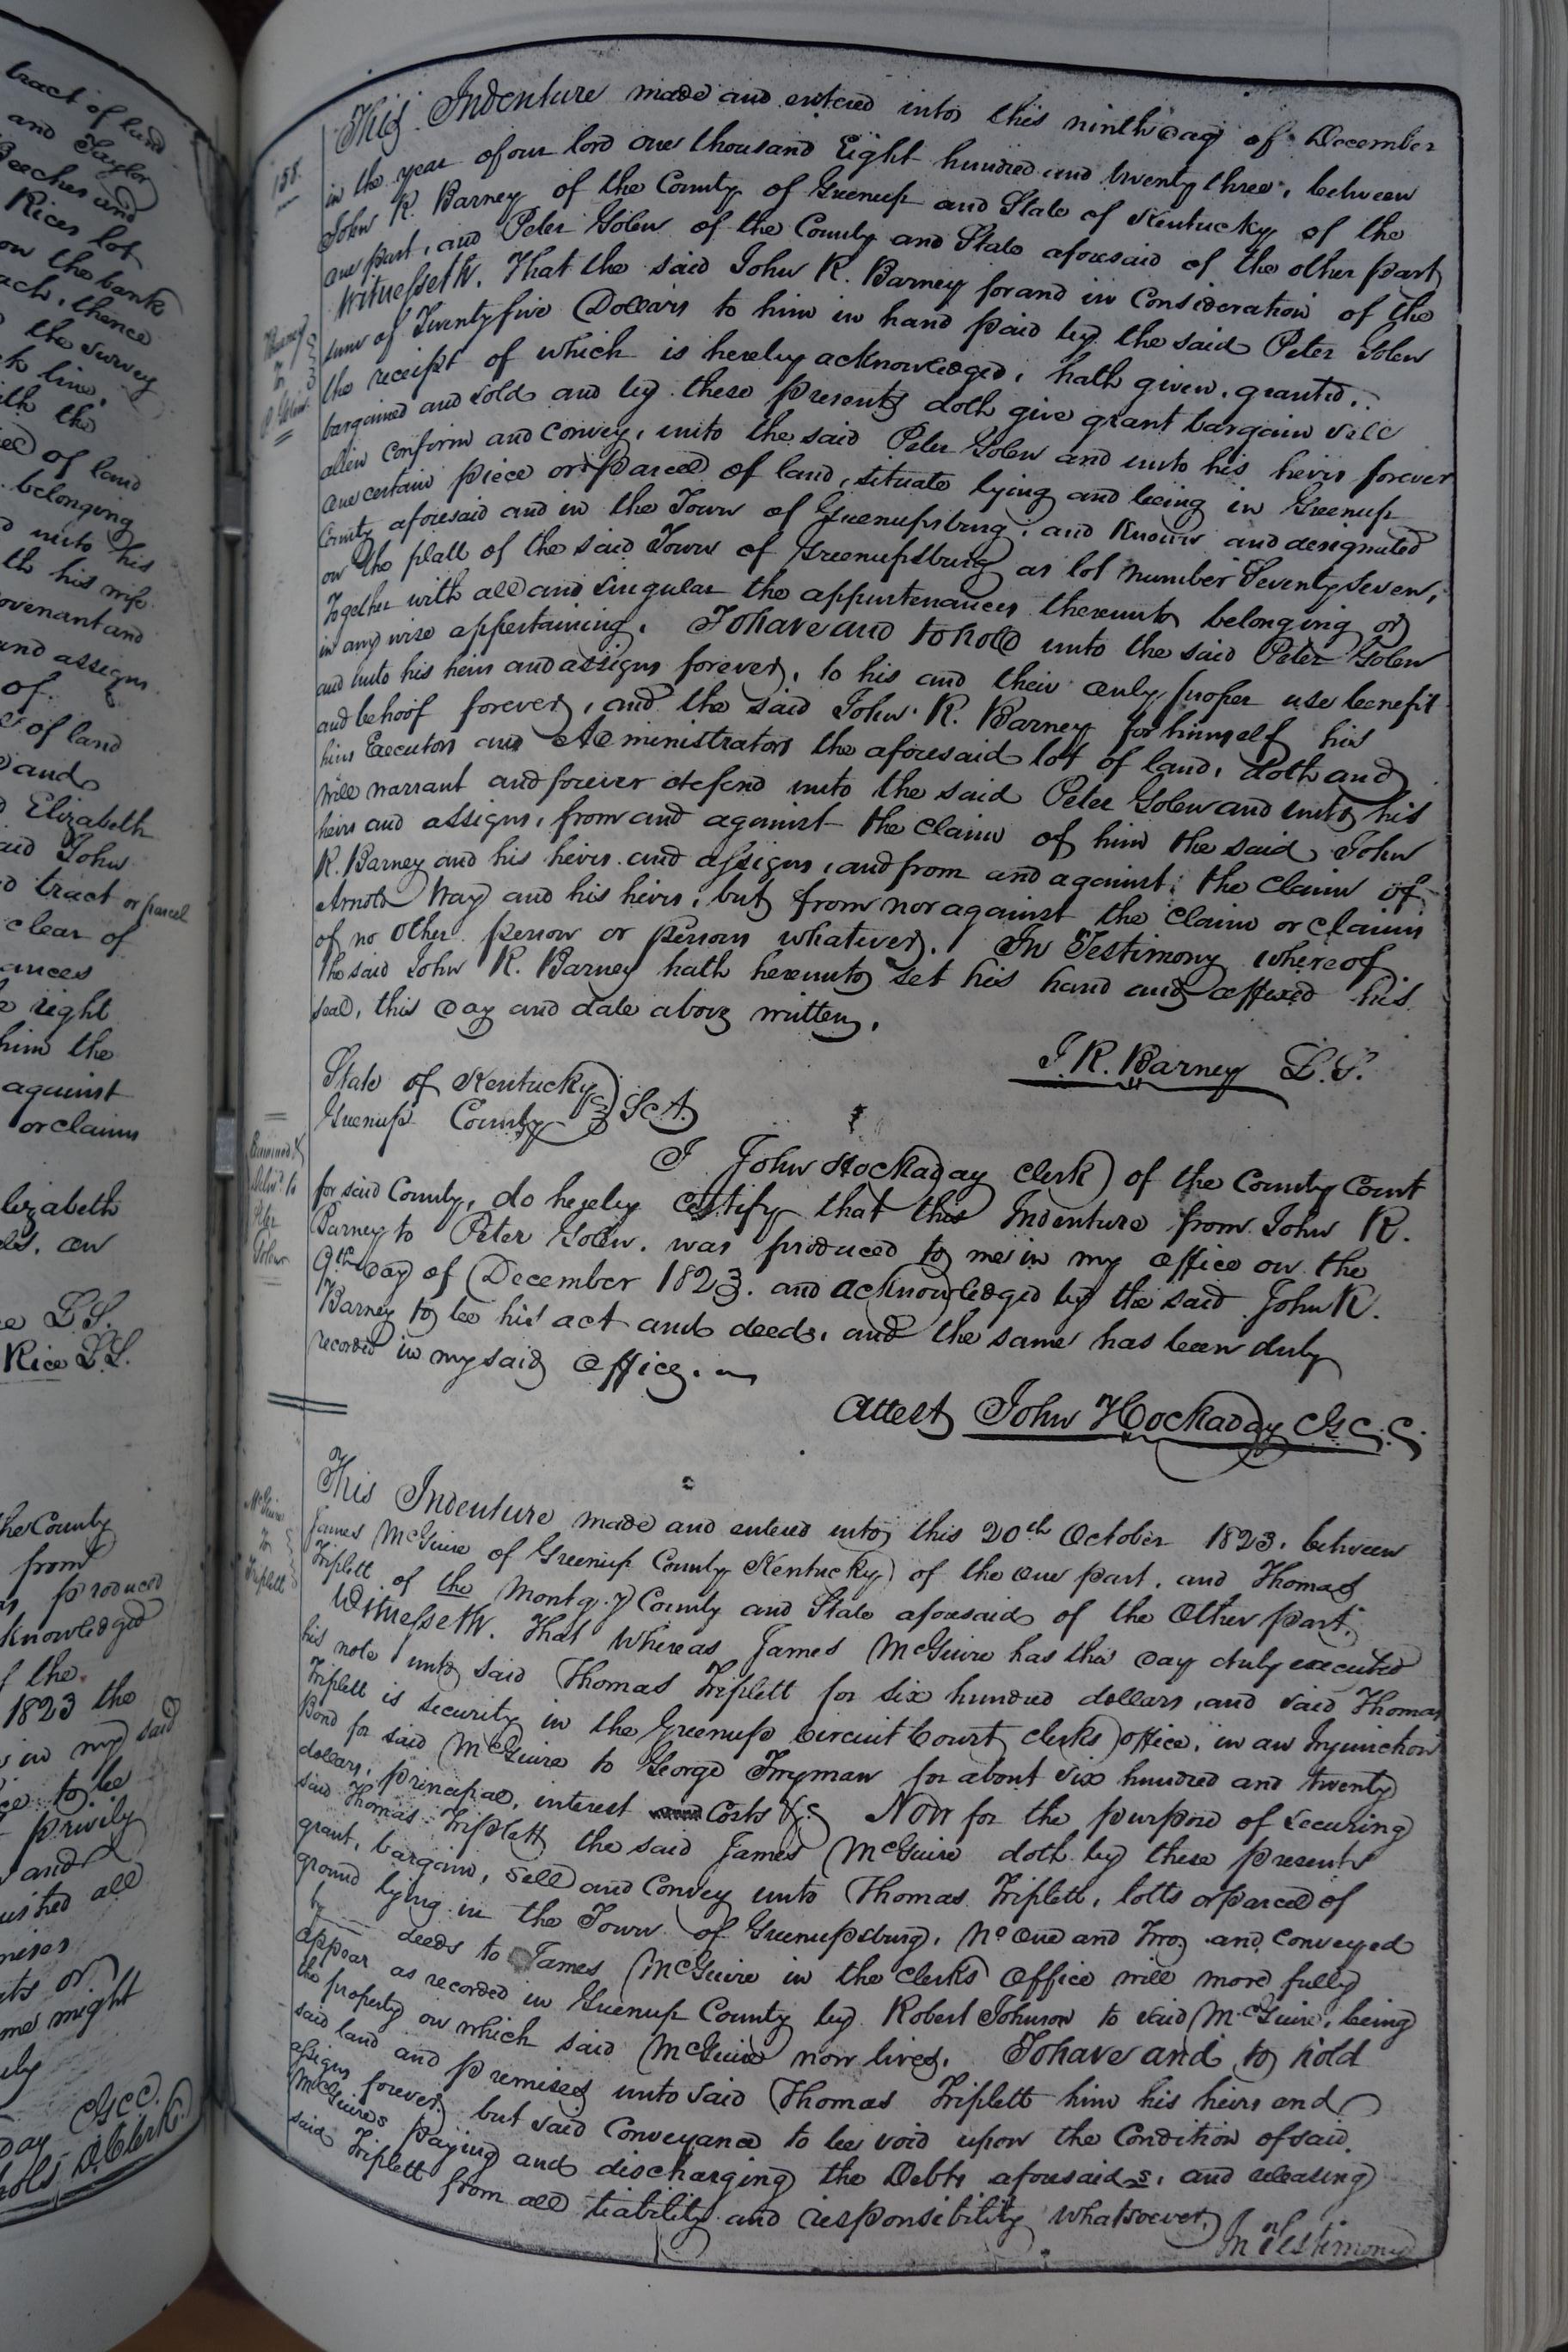 tract of land
and Taylor
Beeches and
Rices lot
on the bank
ach, thence
the survey
k line,
ith the
of land
belonging
unto his
th his wife
ovenant and
and assigns
of
of land
and
Elizabeth
aid John
tract or parcel
clear of
ances
right
him the
against
or claims
lizabeth
on
L.S.
Rice L.S.
the County
from
produced
knowledged
the
1823 the
in my said
to be
privily
and
all
might
GCC.
D. Clerk
158.
This Indenture made and entered into this ninth day of December
in the year of our lord one thousand Eight hundred and twenty three, between
John R. Barney of the County of Greenup and State of Kentucky of the
one part, and Peter Golew of the County and State aforesaid of the other part
Witnesseth. That the said John R. Barney for and in Consideration of the
sum of Twenty five Dollars to him in hand paid by the said Peter Golew
the receipt of which is hereby acknowledged, hath given, granted,
bargained and sold and by these presents doth give grant bargain sell
alien Confirm and Convey, unto the said Peter Golew and unto his heirs forever
one certain piece or parcel of land, situate lying and being in Greenup
County aforesaid and in the Town of Greenupsburg, and Known and designated
on the platt of the said Town of Greenupsburg as lot number Seventy Seven,
Together with all and singular the appurtenances thereunto belonging or
in any wise appertaining. To have and to hold unto the said Peter Golew
and unto his heirs and assigns forever, to his and their only proper use benefit
and behoof forever, and the said John R. Barney for himself his
heirs Executors and Administrators the aforesaid lot of land, doth and
will warrant and forever defend unto the said Peter Golew and unto his
heirs and assigns, from and against the Claim of him the said John
R. Barney and his heirs and assigns, and from and against, the Claim of
Arnold Way and his heirs, but from nor against the Claim or claims
of no other person or persons whatever. In Testimony whereof
the said John R. Barney hath hereunto set his hand and affixed his
seal, this day and date above written,
J. R. Barney L.S.
Barney
To
P Golew
State of Kentucky
Greenup County Sct.
I John Hockaday Clerk of the County Court
for said County, do hereby certify that this Indenture from John R.
Barney to Peter Golew, was produced to me in my office on the
9th day of December 1823. and acknowledged by the said John R.
Barney to be his act and deed, and the same has been duly
recorded in my said office.
Attest John Hockaday C.G.C.C.
Examined &
Deliv'd to
Peter
Golew
McGuire
To
Triplett
This Indenture made and entered into this 20th October 1823, between
James McGuire of Greenup County Kentucky of the one part, and Thomas
Triplett of the Montg.y County and State aforesaid of the Other part.
Witnesseth. That Whereas James McGuire has this day duly executed
his note unto said Thomas Triplett for six hundred dollars, and said Thomas
Triplett is security in the Greenup Circuit Court clerks office, in an Injunction
Bond for said McGuire to George Fryman for about six hundred and twenty
dollars, principal, interest Costs &c Now for the purpose of securing
said Thomas Triplett the said James McGuire doth by these presents
grant, bargain, sell and Convey unto Thomas Triplett, lotts or parcel of
ground lying in the Town of Greenupsburg, No One and Two and Conveyed
by deeds to James McGuire in the Clerks Office will more fully
appear as recorded in Greenup County by Robert Johnson to said McGuire, being
the property on which said McGuire now lives. To have and to hold
said land and premises unto said Thomas Triplett him his heirs and
assigns forever, but said Conveyance to be void upon the Condition of said
McGuires paying and discharging the Debts aforesaid, and releasing
said Triplett from all liability and responsibility whatsoever.
In Testimony